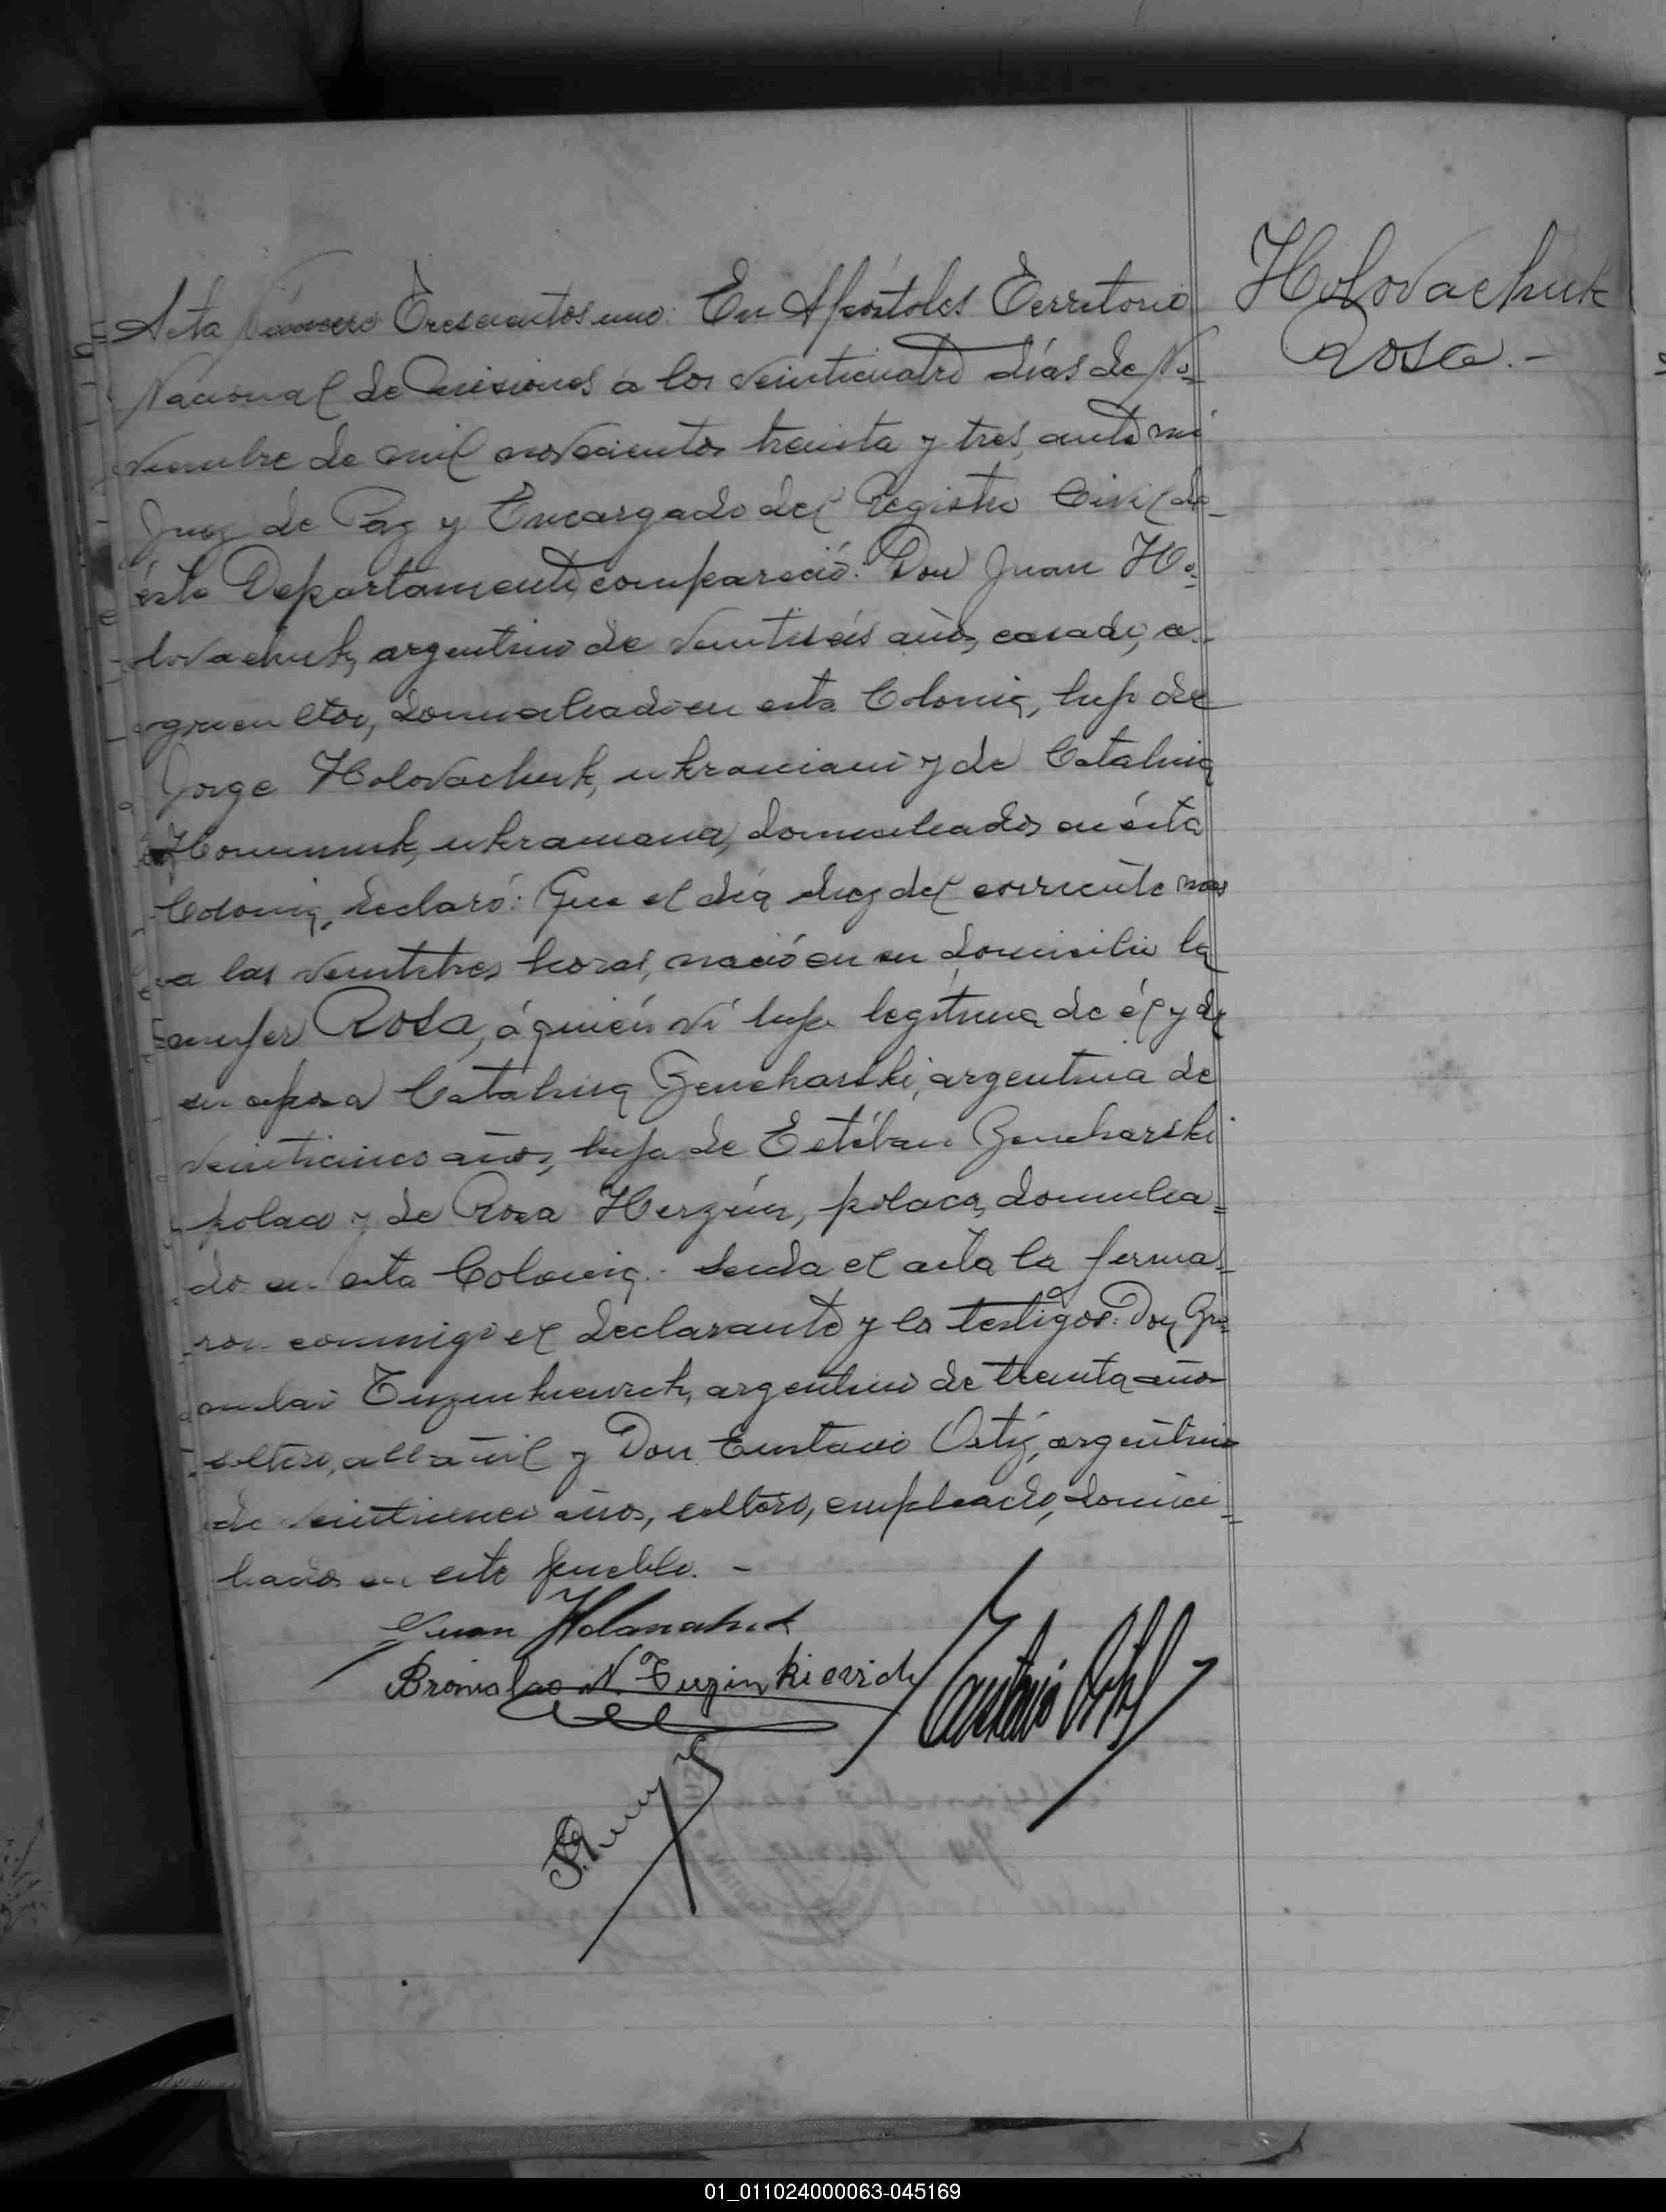 Holovachuk
Rosa.-
Acta Número Trescientos uno: En Apóstoles Territorio
Nacional de Misiones a los veinticuatro días de No=
viembre de mil novecientos treinta y tres, ante mí
Juez de Paz y Encargado del Registro Civil de
éste Departamento, compareció: Don Juan Ho=
lovachuk, argentino de veintiseis años, casado, a-
gricultor, domiciliado en esta Colonia, hijo de
Jorge Holovachuk, ukraniano y de Catalina
ukraniana, domiciliados en ésta
Colonia, declaró: Que el día diez del corriente mes
a las veintitres horas, nació en su domicilio la
mujer Rosa, á quién vi hija legítima de él y de
su esposa Catalina Zencharski, argentina de
veinticinco años, hija de Estéban Zencharski
polaco y de Rosa polaca, domicilia=
do en esta Colonia.- Leida el acta la firma-
ron conmigo el declarante y los testigos: Don
Tuzinkievich, argentino de treinta años
soltero, albañil y Don Eustacio Ortiz, argentino
de veinticinco años, soltero, empleado, domici=
liados en este pueblo.-
Juan Holovachuk
Bronislao N. Tuzinkievich
Eustacio Ortiz
01_011024000063-045169